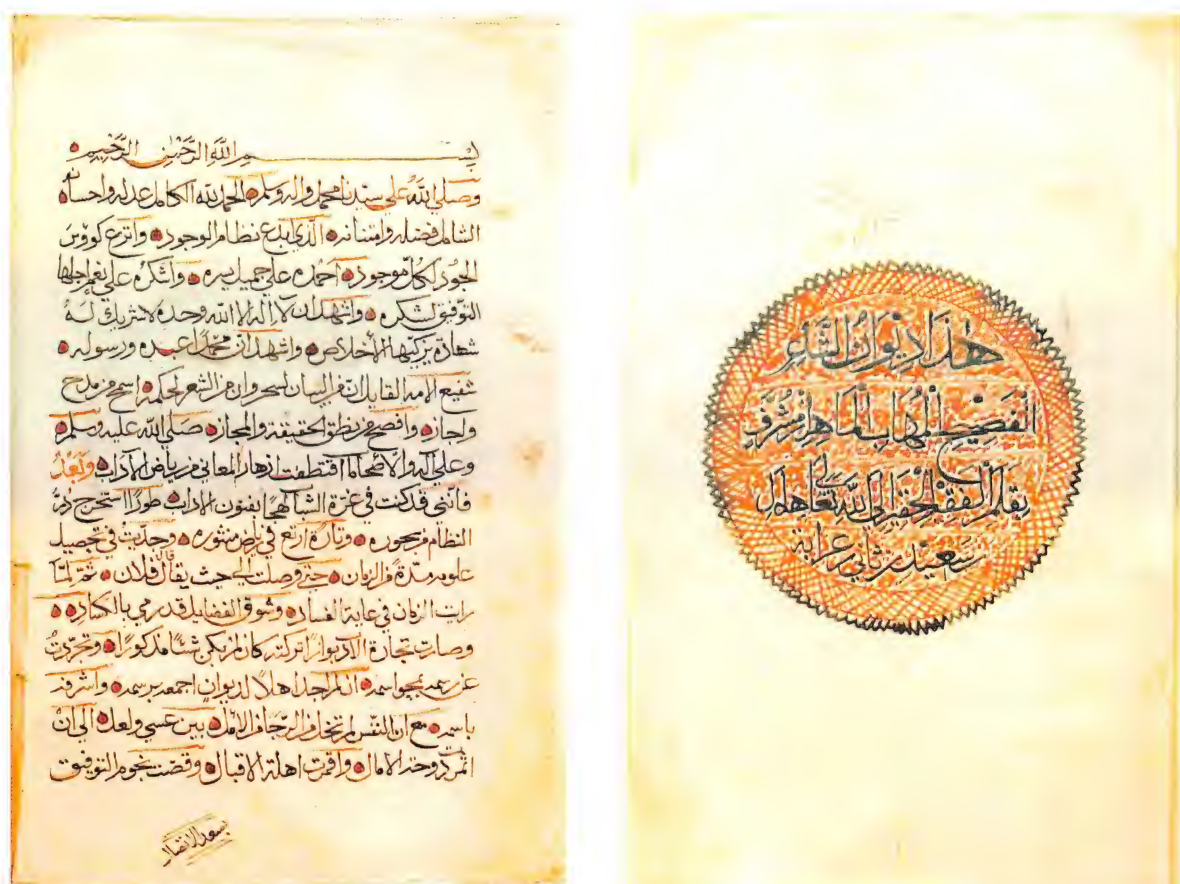 هذا ديوان الشاعر
الفصيح المهاب الماهر بن شرف
بقلم الفقير الحقير الى الله تعالى
سعيد بن ثاني عرابة
بسم الله الرحمن الرحيم
وصلي الله علي سيدنا محمد واله وسلم الحمد لله الكامل عدله واحسانه
الشامل فضله وامتنانه الذي ابدع نظام الوجود واترع كووس
الجود لكل موجود احمده علي جميل بره واشكره علي نعم اجلها
التوفيق لشكره واشهد ان لا اله الا الله وحده لا شريك له
شهادة يزكيها الأخلاص واشهد ان محمدا عبده ورسوله
شفيع الامه القايل ان من البيان لسحر وان من الشعر لحكمه اسمح من مدح
واجازه وافصح من نطق الحقيقة والمجازه صلي الله عليه وسلم
وعلي آله والاصحاب ما اقتطفت ازهار المعاني من رياض الآداب وبعد
فانني قد كنت في عزة الشباب لهجا بفنون الاداب طورا استخرج در
النظام من بحوره وتارة ارتع في رياض منثوره وجديت في تحصيل
علومه مدة من الزمان حتي وصلت الي حيث يقال قال فلان ثم لما
رايت الزمان في غاية الفساد وسوق الفضايل قد رمي بالكساد
وصارت تجارة الآداب تركته كان لم يكن شيئا مذكورا وتجردت
عن اسمه ان لم اجد اهلا لديوان اجمعه برسمه واشرفه
باسمه مع ان النفس لم تخل من الرجا في الامل بين عسي ولعل الي ان
اثمرت دوحة الامال واقمرت اهلة الاقبال وقضت نجوم التوفيق
بسعد الاتصال